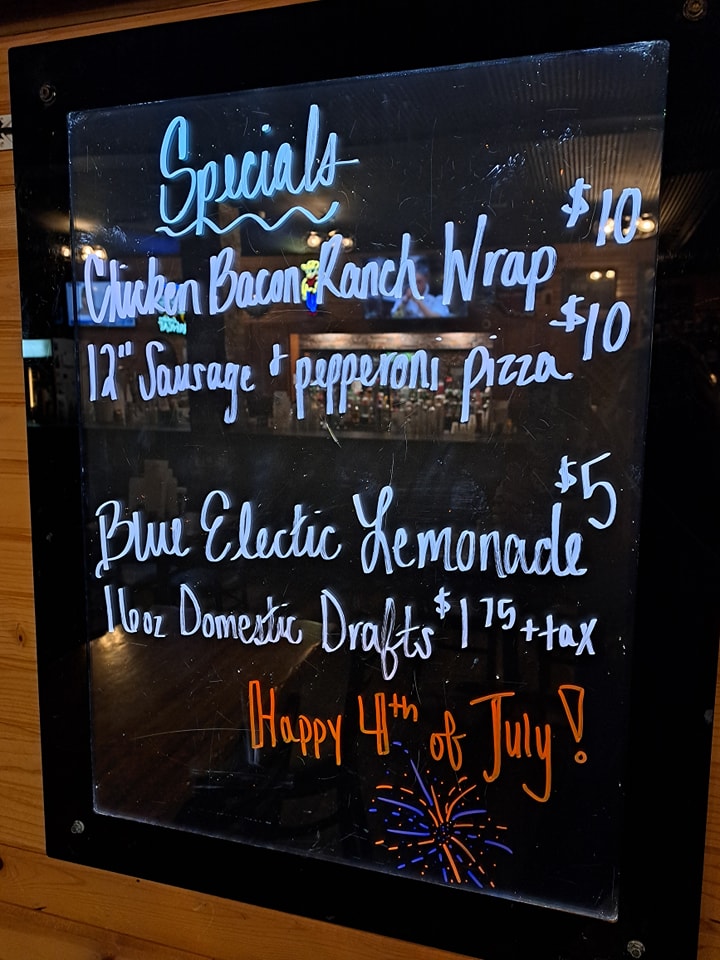 Specials
Chicken Bacon Ranch Wrap $10
12" Sausage + pepperoni pizza $10
Blue Electic Lemonade $5
16oz Domestic Drafts $1 75 + tax
Happy 4th of July!